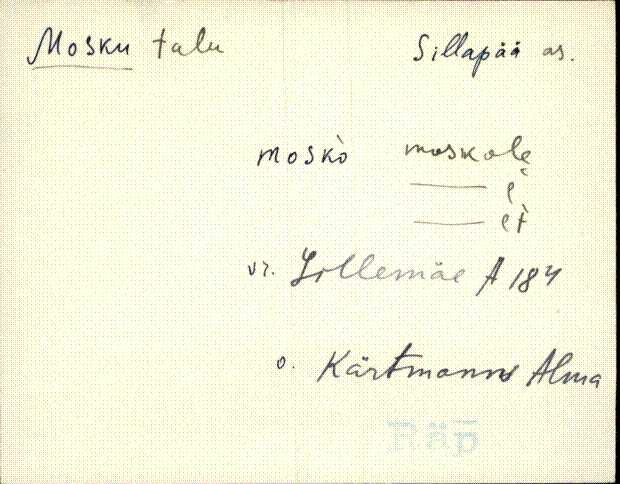 Mosku talu Sillapää as.
moskò moskolȩ
—— ȩ
—— et̀
vr. Lillemäe A 184
o. Kärtmann Alma
Räp